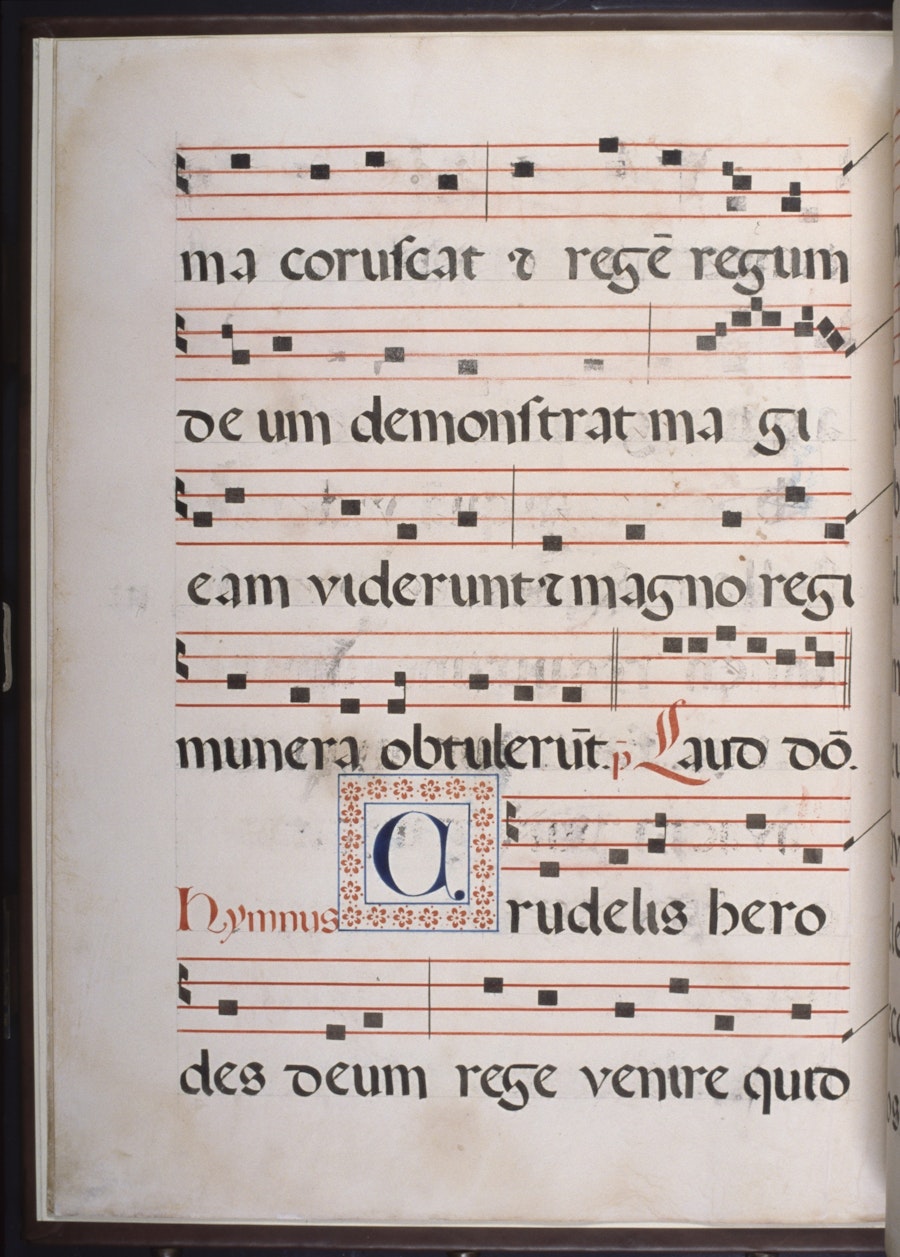 ma coruſcat ⁊ regē regum
de um demonſtrat ma gi
eam viderunt ⁊ magno regi
munera obtulerūt. p̄ Laud dō.
Hymnus Crudelis hero
des deum rege venire quid